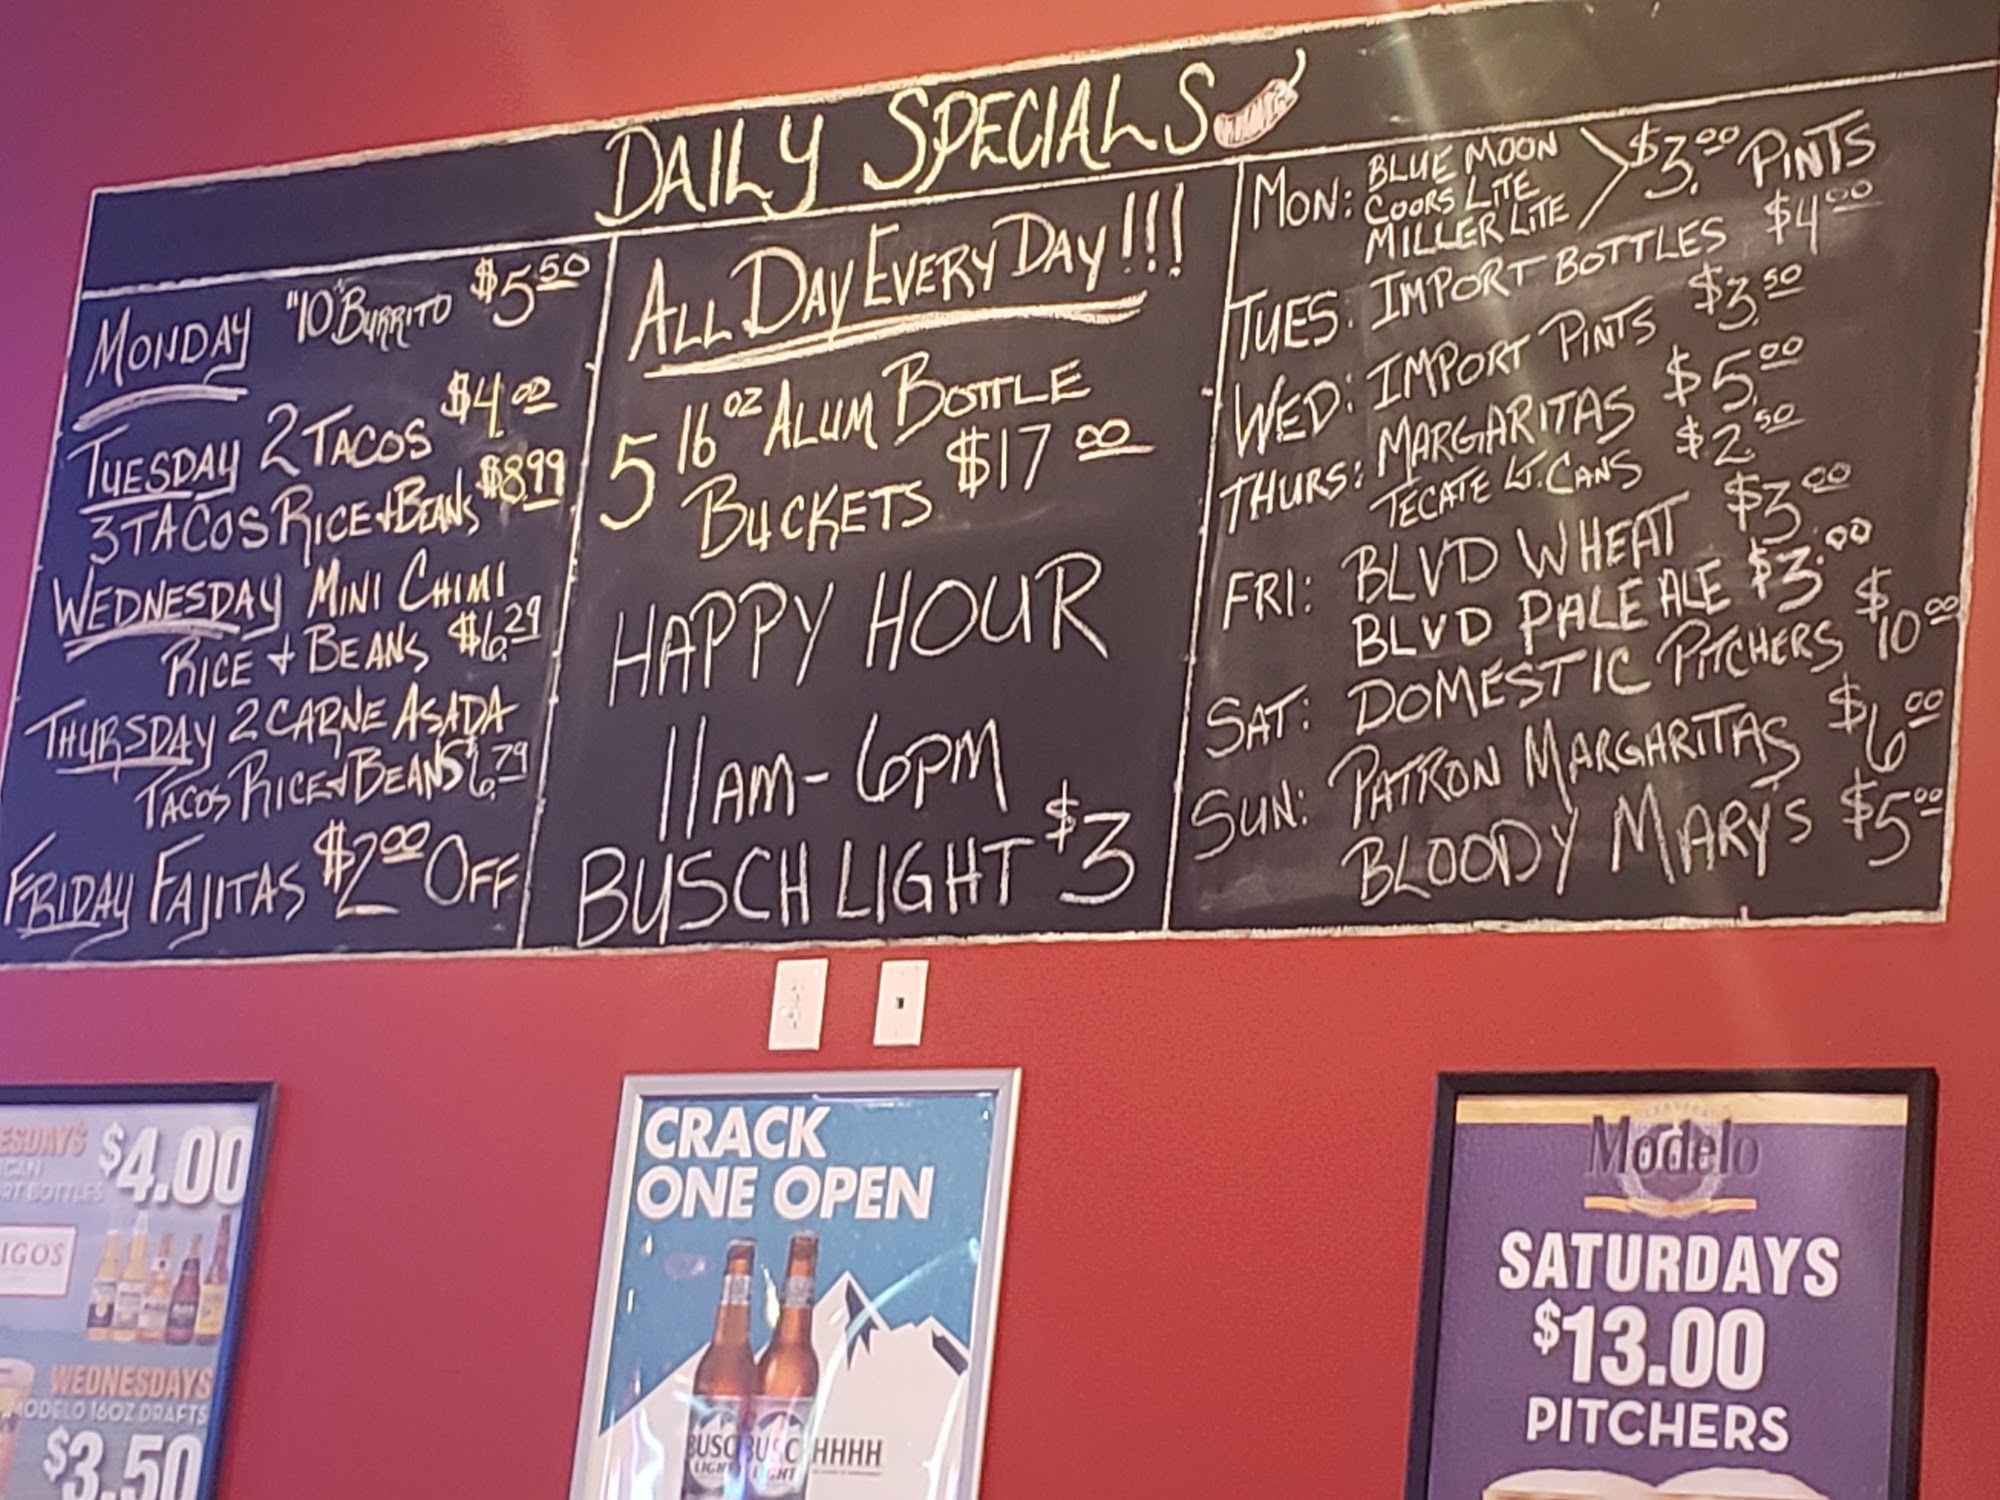 DAILY SPECIALS
MONDAY "10" BURRITO $5.50
TUESDAY 2 TACOS $4.00
3 TACOS RICE + BEANS $8.99
WEDNESDAY MINI CHIMI
RICE + BEANS $6.29
THURSDAY 2 CARNE ASADA
TACOS RICE + BEANS $6.79
FRIDAY FAJITAS $2.00 OFF
ALL DAY EVERY DAY!!!
5 16 oz ALUM BOTTLE
BUCKETS $17.00
HAPPY HOUR
11AM - 6PM
BUSCH LIGHT $3
MON: BLUE MOON
COORS LITE
MILLER LITE
$3.00 PINTS
TUES: IMPORT BOTTLES $4.00
WED: IMPORT PINTS $3.50
THURS: MARGARITAS $5.00
TECATE LT. CANS $2.50
FRI: BLVD WHEAT $3.00
BLVD PALE ALE $3.00
SAT: DOMESTIC PITCHERS $10.00
SUN: PATRON MARGARITAS $6.00
BLOODY MARY'S $5.00
ESDAYS $4.00
ICAN
RT BOTTLES
IGO'S
WEDNESDAYS
MODELO 16OZ DRAFTS
$3.50
CRACK
ONE OPEN
BUSC BUSC HHHH
LIGHT LIGHT
Modelo
SATURDAYS
$13.00
PITCHERS